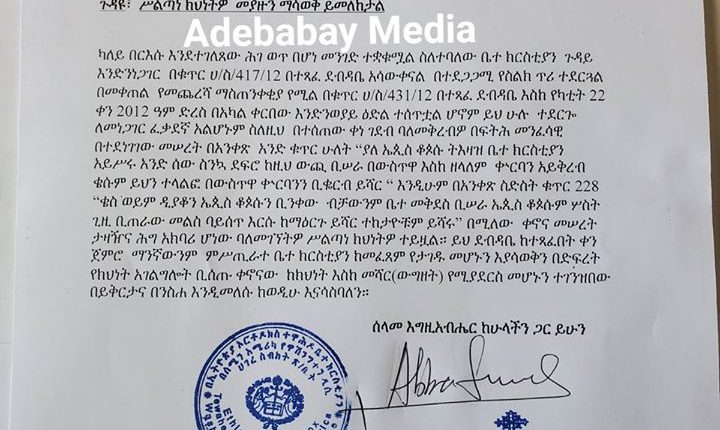 ጉዳዩ፣ ሥልጣነ ክህነትዎ መያዙን ማሳወቅ ይመለከታል
Adebabay Media
ካለይ በርእሱ እንደተገለጸው ሕገ ወጥ በሆነ መንገድ ተቋቁሟል ስለተባለው ቤተ ክርስቲያን ጉዳይ
እንድንነጋገር በቁጥር ሀ/ስ/417/12 በተጻፈ ደብዳቤ አሳውቀናል በተደጋጋሚ የስልክ ጥሪ ተደርጓል
በመቀጠል የመጨረሻ ማስጠንቀቂያ የሚል በቁጥር ሀ/ስ/431/12 በተጻፈ ደብዳቤ እስከ የካቲት 22
ቀን 2012 ዓም ድረስ በአካል ቀርበው እንድንወያይ ዕድል ተሰጥቷል ሆኖም ይህ ሁሉ ተደርጎ
ለመነጋገር ፈቃደኛ አልሆኑም ስለዚህ በተሰጠው ቀነ ገደብ ባለመቅረብዎ በፍትሕ መንፈሳዊ
በተደነገገው መሠረት በአንቀጽ አንድ ቁጥር ሁለት “ያለ ኤጲስ ቆጶሱ ትእዛዝ ቤተ ክርስቲያን
አይሥሩ አንድ ሰው ስንኳ ደፍሮ ከዚህ ውጪ ቢሠራ በውስጥዋ እስከ ዘላለም ቍርባን አይቅረብ
ቄሱም ይህን ተላልፎ በውስጥዋ ቍርባንን ቢቄርብ ይሻር “ እንዲሁም በአንቀጽ ስድስት ቁጥር 228
“ቄስ ወይም ዲያቆን ኤጲስ ቆጶሱን ቢንቀው ብቻውንም ቤተ መቅደስ ቢሠራ ኤጲስ ቆጶሱም ሦስት
ጊዜ ቢጠራው መልስ ባይሰጥ እርሱ ከማዕርጉ ይሻር ተከታዮቹም ይሻሩ” በሚለው ቀኖና መሠረት
ታዛዥና ሕግ አክባሪ ሆነው ባለመገኘትዎ ሥልጣነ ክህነትዎ ተይዟል። ይህ ደብዳቤ ከተጻፈበት ቀን
ጀምሮ ማንኛውንም ምሥጢራተ ቤተ ክርስቲያን ከመፈጸም የታገዱ መሆኑን እያሳወቅን በድፍረት
የክህነት አገልግሎት ቢሰጡ ቀኖናው ከክህነት እስከ መሻር(ውግዘት) የሚያደርስ መሆኑን ተገንዝበው
በይቅርታና በንስሐ እንዲመለሱ ከወዲሁ እናሳስባለን።
ሰላመ እግዚአብሔር ከሁላችን ጋር ይሁን